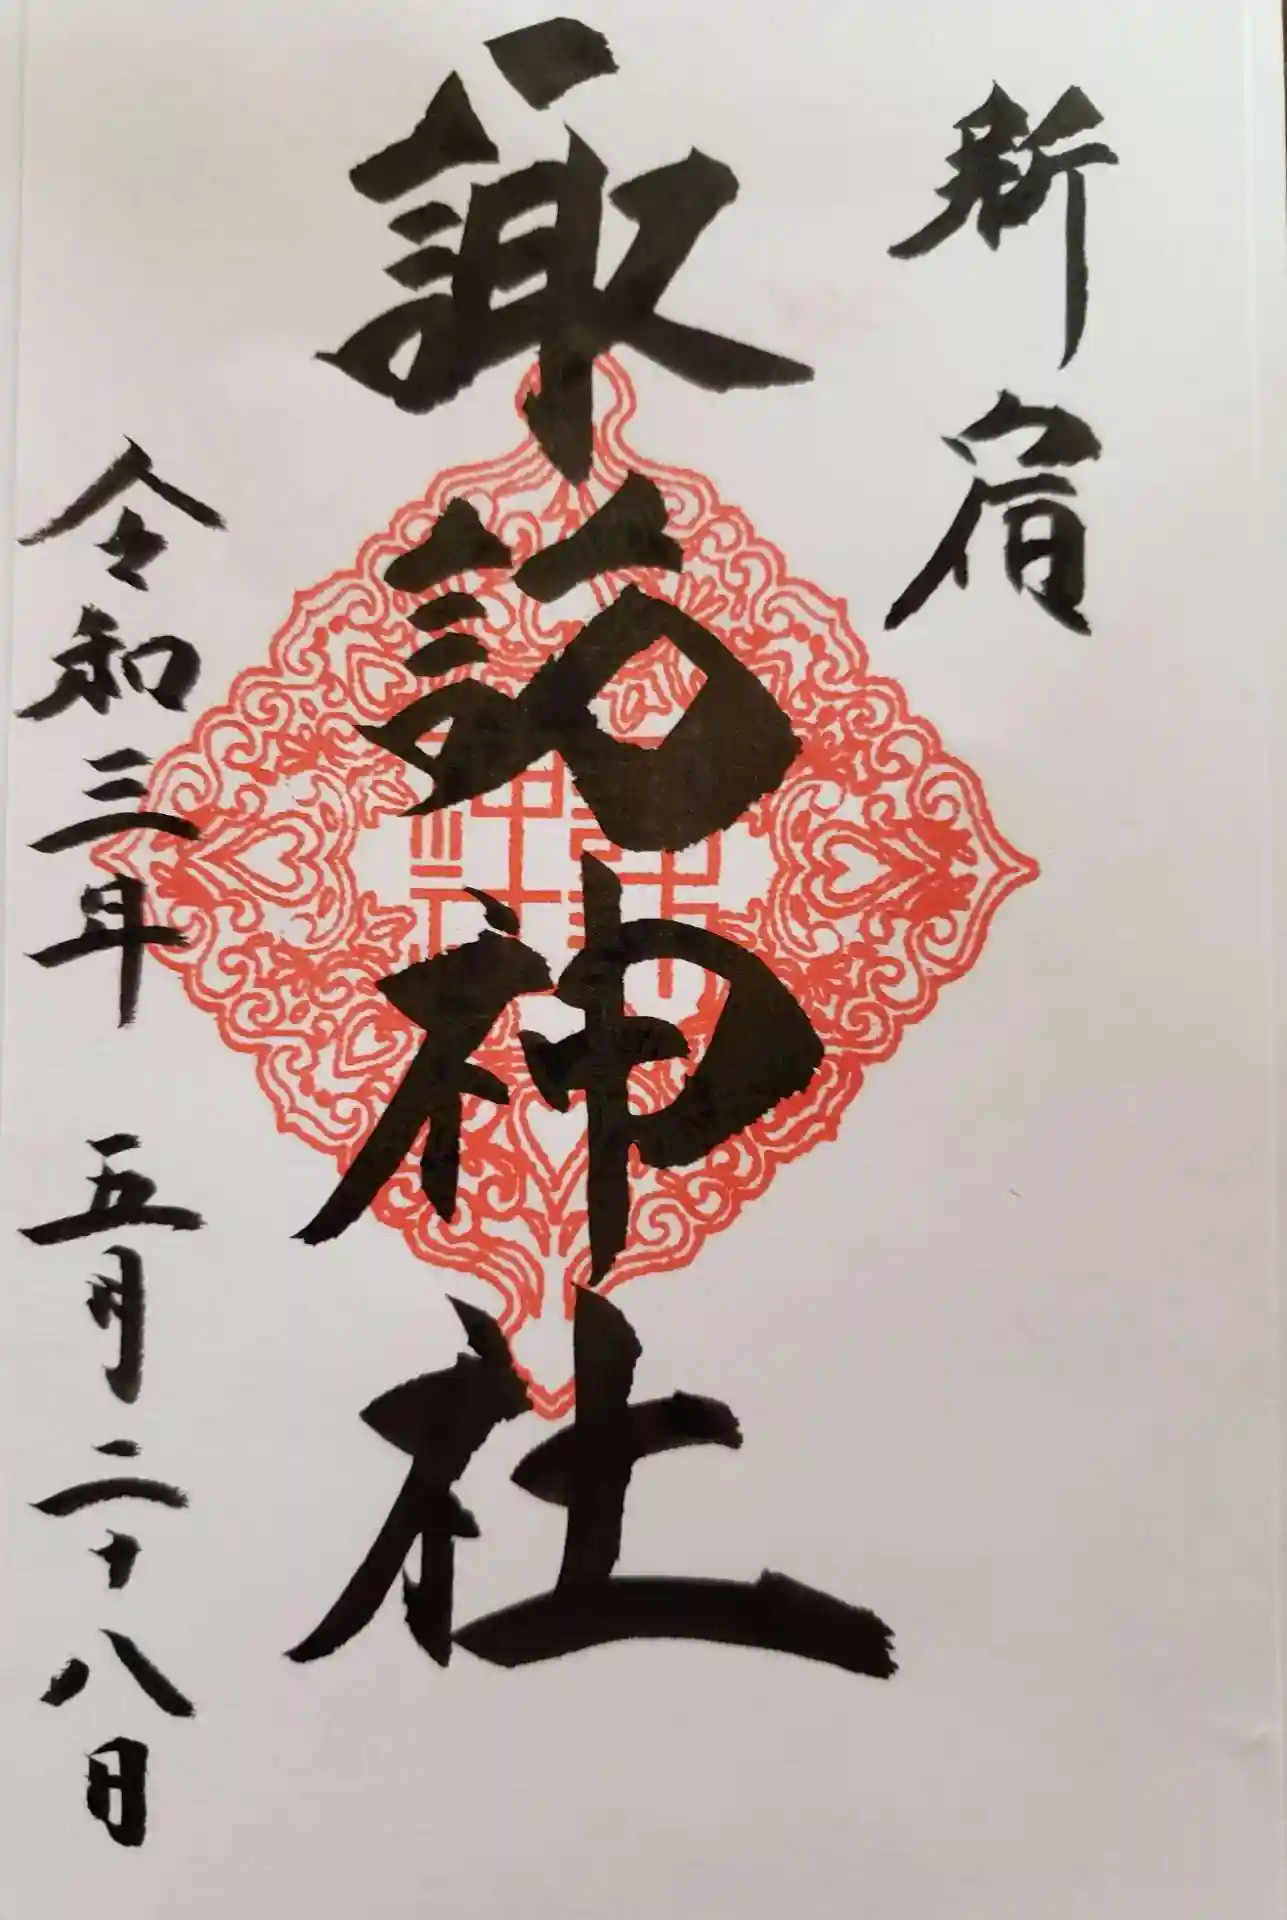 新宿
諏訪神社
令和三年 五月二十八日